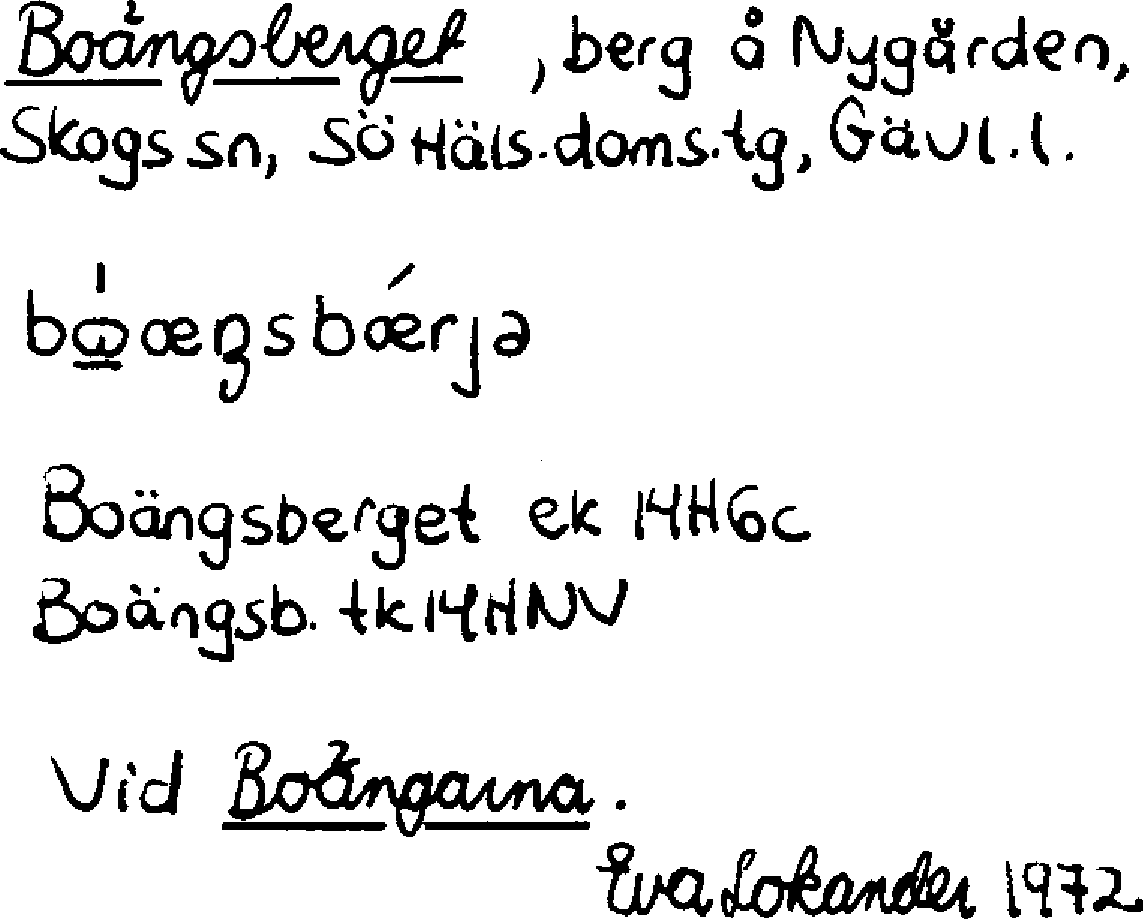 Boängsberget, berg å Nygården,
Skogs sn, Sö Häls. doms. tg, Gävl. l.
Boängsberget ek 14H6c
Boängsb. tk 14HNV
Vid Boängarna.
Eva Lokander 1972